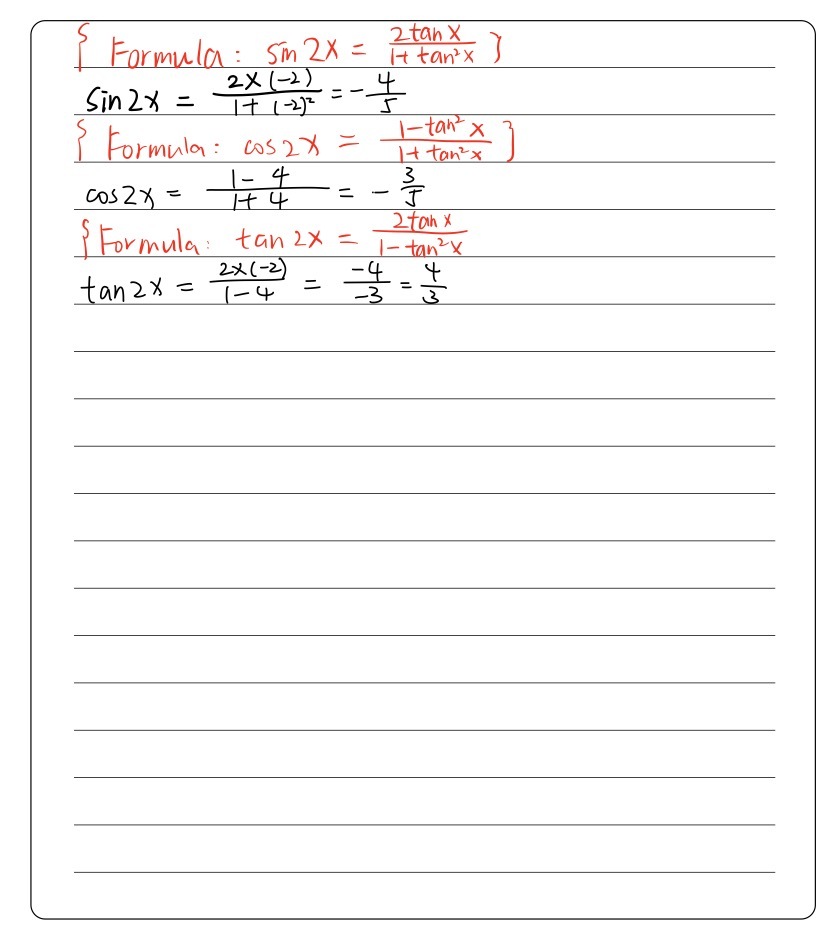 { Formula: sin 2x = \frac{2tan x}{1+ tan²x} }
sin 2x = \frac{2x(-2)}{1+ (-2)²} = -\frac{4}{5}
{ Formula: cos 2x = \frac{1-tan² x}{1+ tan²x} }
cos2x = \frac{1- 4}{1+ 4} = -\frac{3}{5}
{ Formula: tan 2x = \frac{2tan x}{1- tan²x}
tan 2x = \frac{2x(-2)}{1-4} = \frac{-4}{-3} = \frac{4}{3}